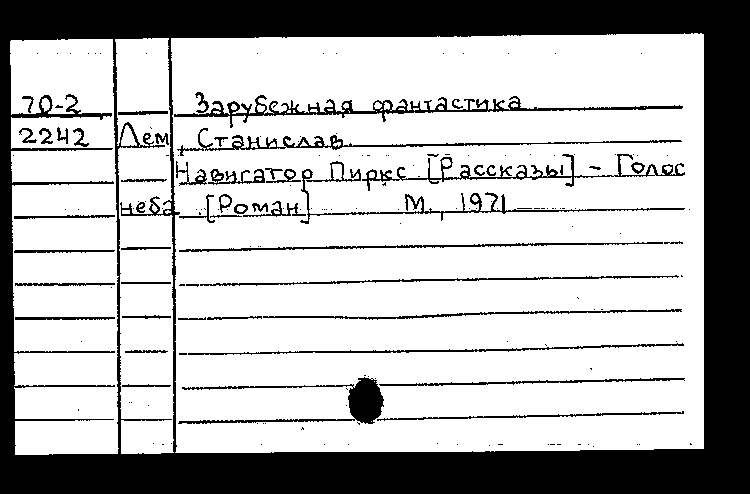 70-2 Зарубежная фантастика.
2242 Лем, Станислав.
Навигатор Пиркс [Рассказы] - Голос
неба [Роман] М., 1971